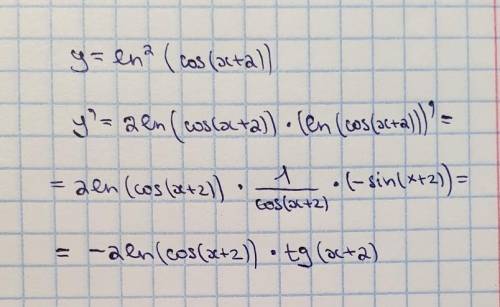 y = ln² (cos(x+2))
y' = 2ln(cos(x+2)) · (ln(cos(x+2)))' =
= 2ln(cos(x+2)) · 1/cos(x+2) · (-sin(x+2)) =
= -2ln(cos(x+2)) · tg(x+2)